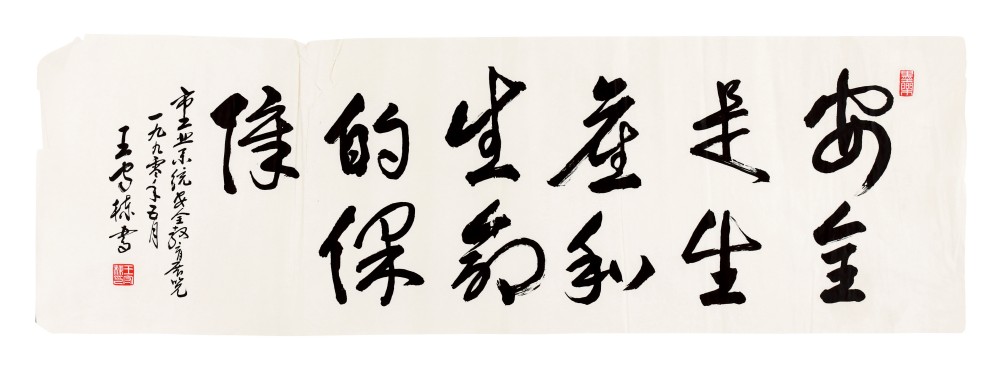 安全
是生
產和
生命
的保
障
市工业系統安全教育展览
一九九零年五月
王栋书